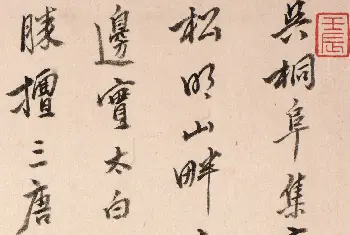 壬辰
桐阜集
松明山畔
邊實太白
勝擅三唐